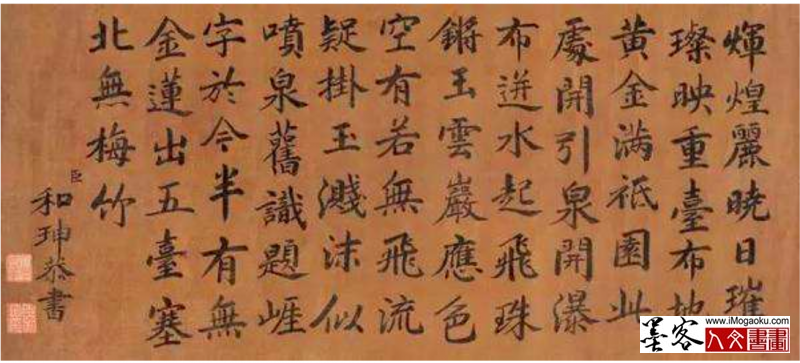 煇煌麗曉日璀
璨映重臺布地
黄金满祇園此
處開引泉開瀑
布迸水起飛珠
鏘玉雲巖應色
空有若無飛流
疑掛玉濺沫似
噴泉舊識題崕
字於今半有無
金蓮出五臺塞
北無梅竹
臣和珅恭書
墨客
www.iMogaoku.com
人文書畫